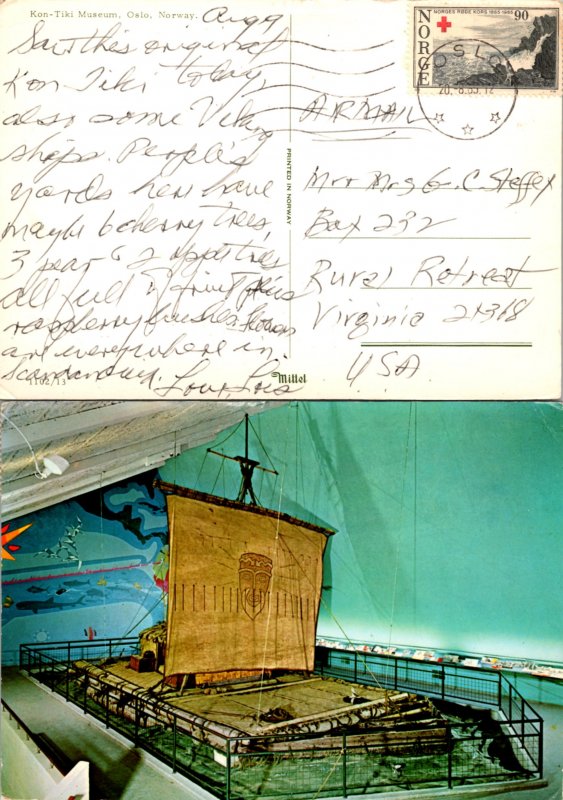 Kon-Tiki Museum, Oslo, Norway.
Aug 9
Saw this original
Kon Tiki today,
also some Viking
ships. People's
yards here have
maybe 6 cherry trees,
3 pear & 2 apple trees
all full of fruit plus
raspberry bushes. Flowers
are everywhere in
Scandinavia.
Love, Lois
1102/13
PRINTED IN NORWAY
Mittet
NORGES RØDE KORS 1865-1965
90
NORGE
OSLO
AIRMAIL
Mr & Mrs G. C. Steffey
Box 232
Rural Retreat
Virginia 24368
USA